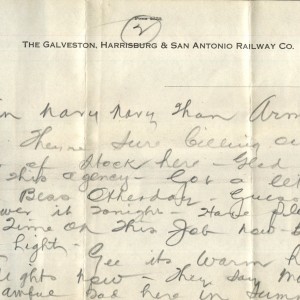 2
THE GALVESTON, HARRISBURG & SAN ANTONIO RAILWAY CO.
in navy navy than Arm
They're sure billing ou
of stock here - Glad
this agency - Got a let
Beas Otherday - Guess
wer it tonight - Have pl
Time on this Job now - b
Light -
Gee its warm h
ughts now - They say m
awful bad here in Sum